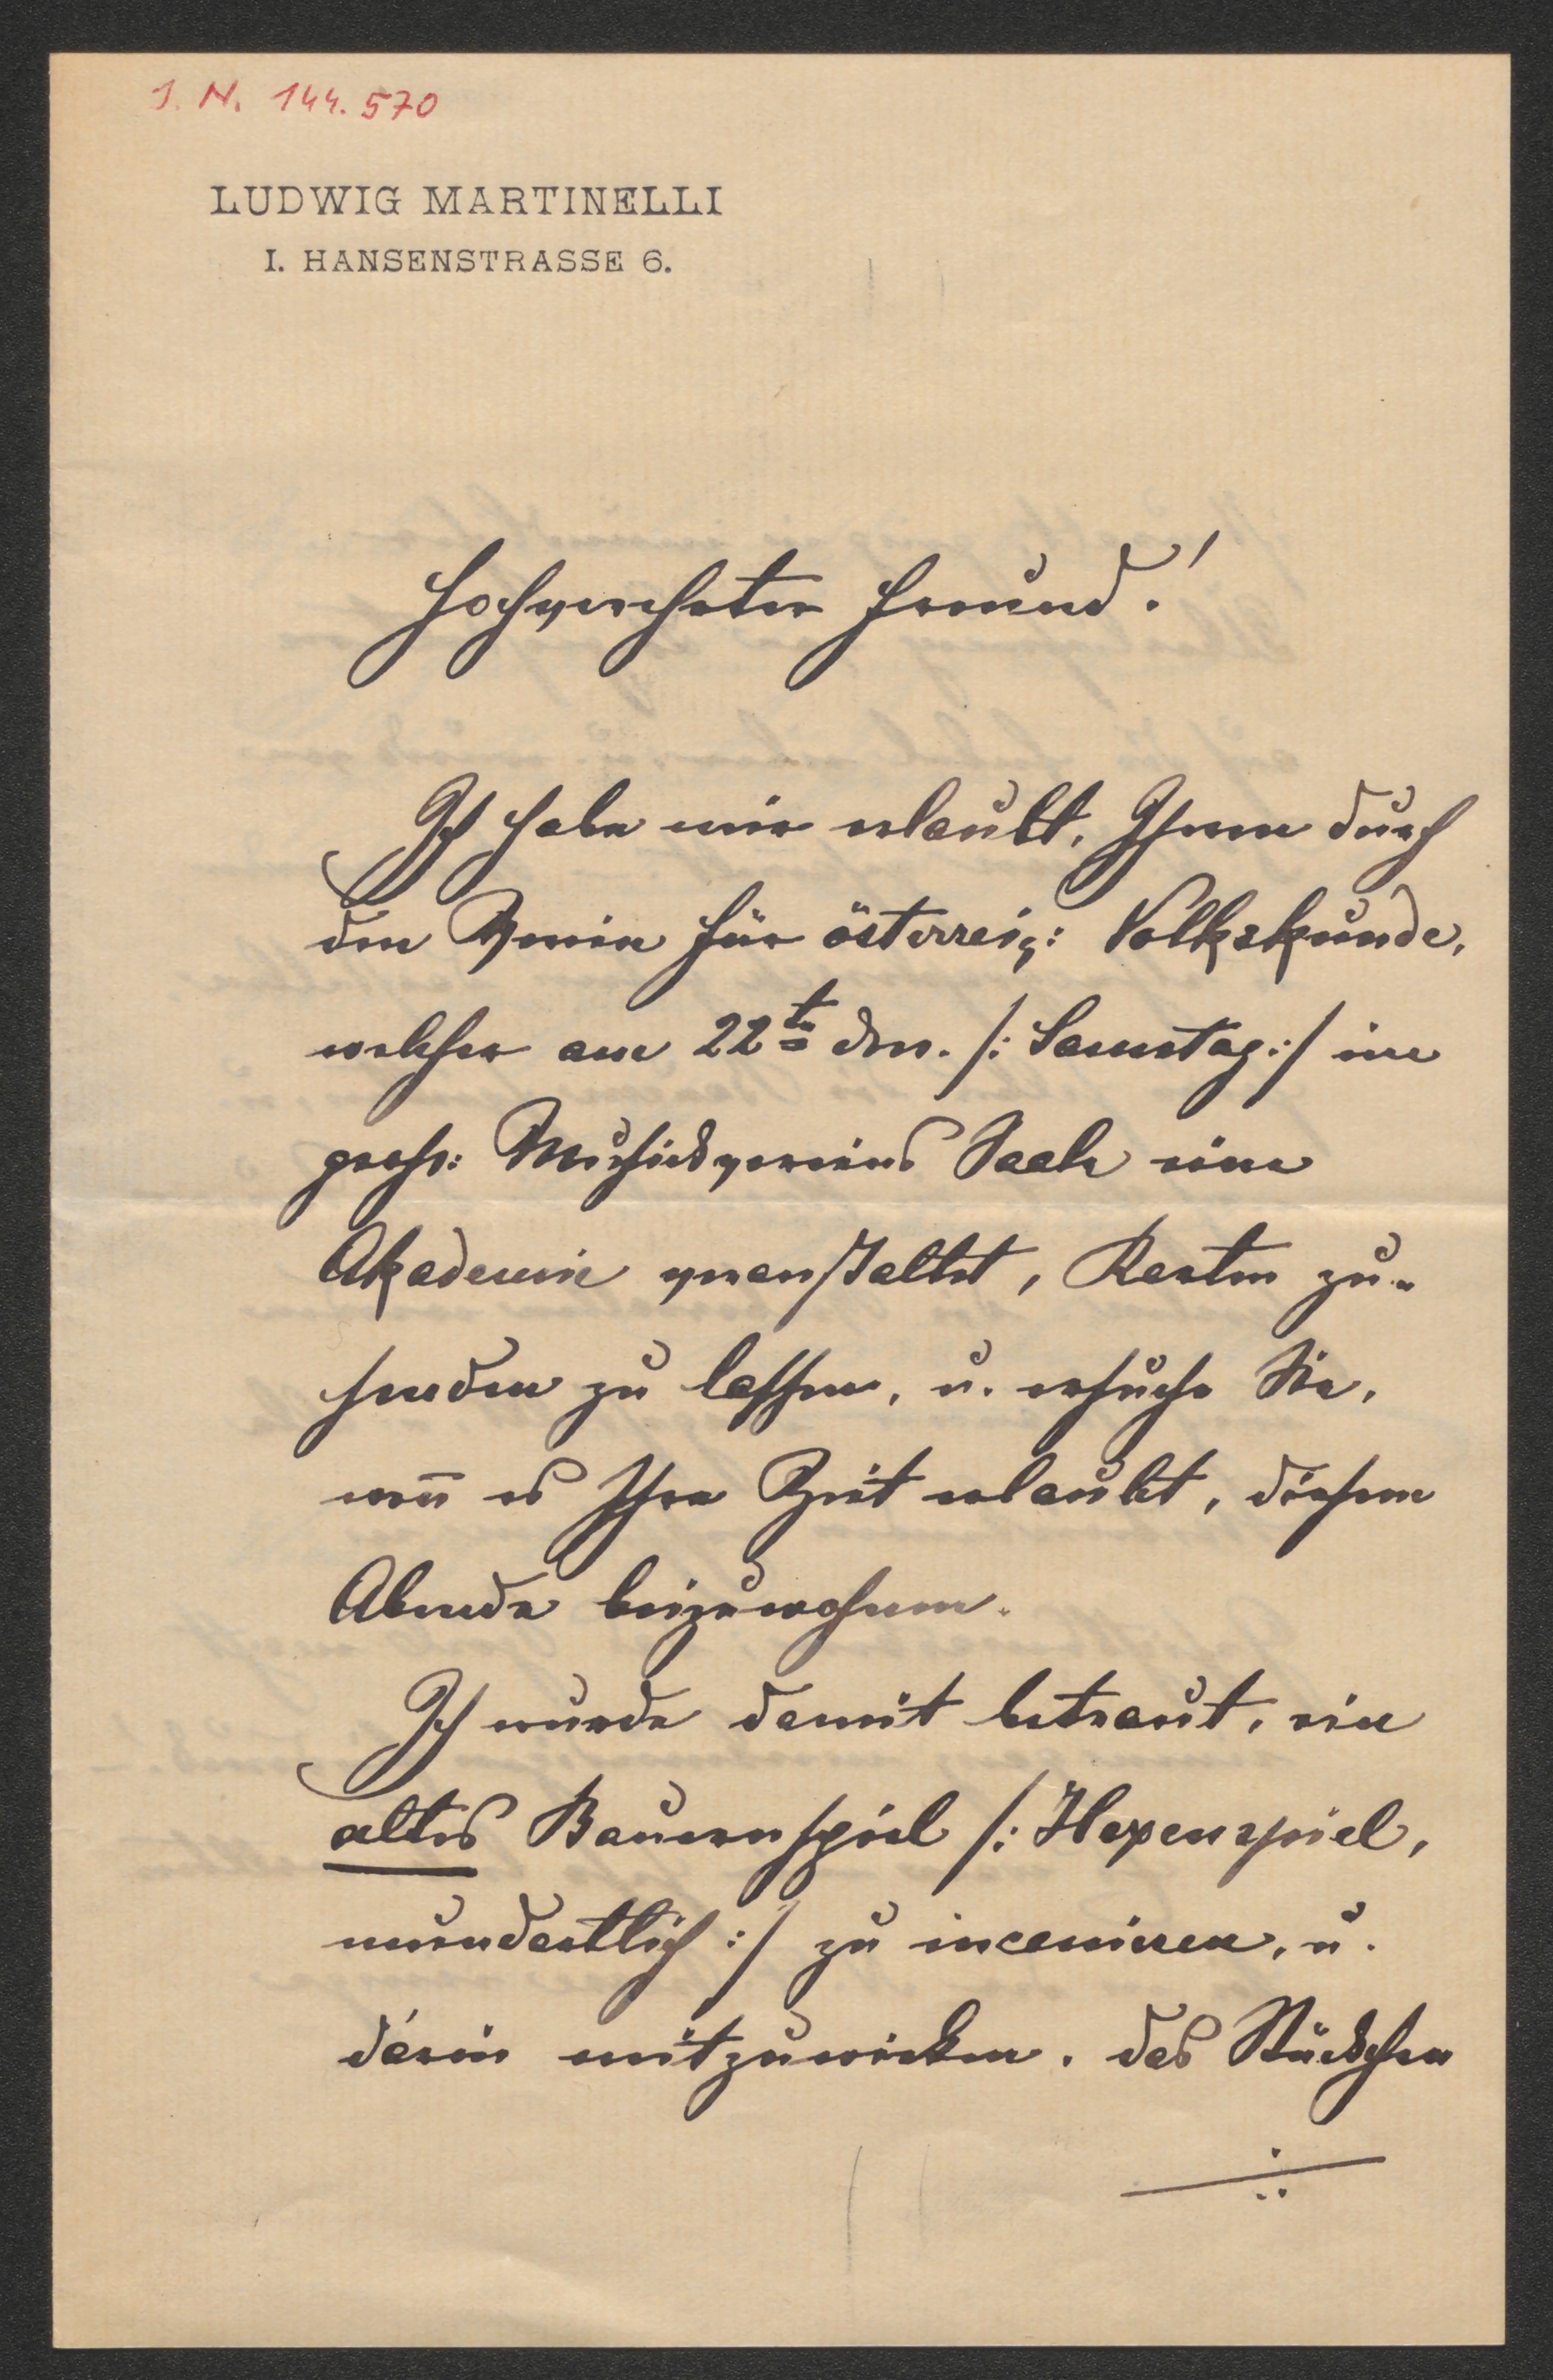 I. N. 144.570
LUDWIG MARTINELLI
I. HANSENSTRASSE 6.
Hochverehrter Freund!
Ich habe mir erlaubt, Ihnen durch
den Verein für österreich: Volkskunde,
welcher am 22te dM. /: Samstag :/ im
groß: Musickvereins Saale eine
Akademie veranstaltet, Karten zu-
senden zu lassen, u. ersuche Sie,
wen̄ es Ihre Zeit erlaubt, diesem
Abende beizuwohnen.
Ich wurde damit betraut, ein
altes Bauernspiel /: Hexenspiel,
mundartlich :/ zu inceniren, u.
darin mitzuwirken. Das Stückchen